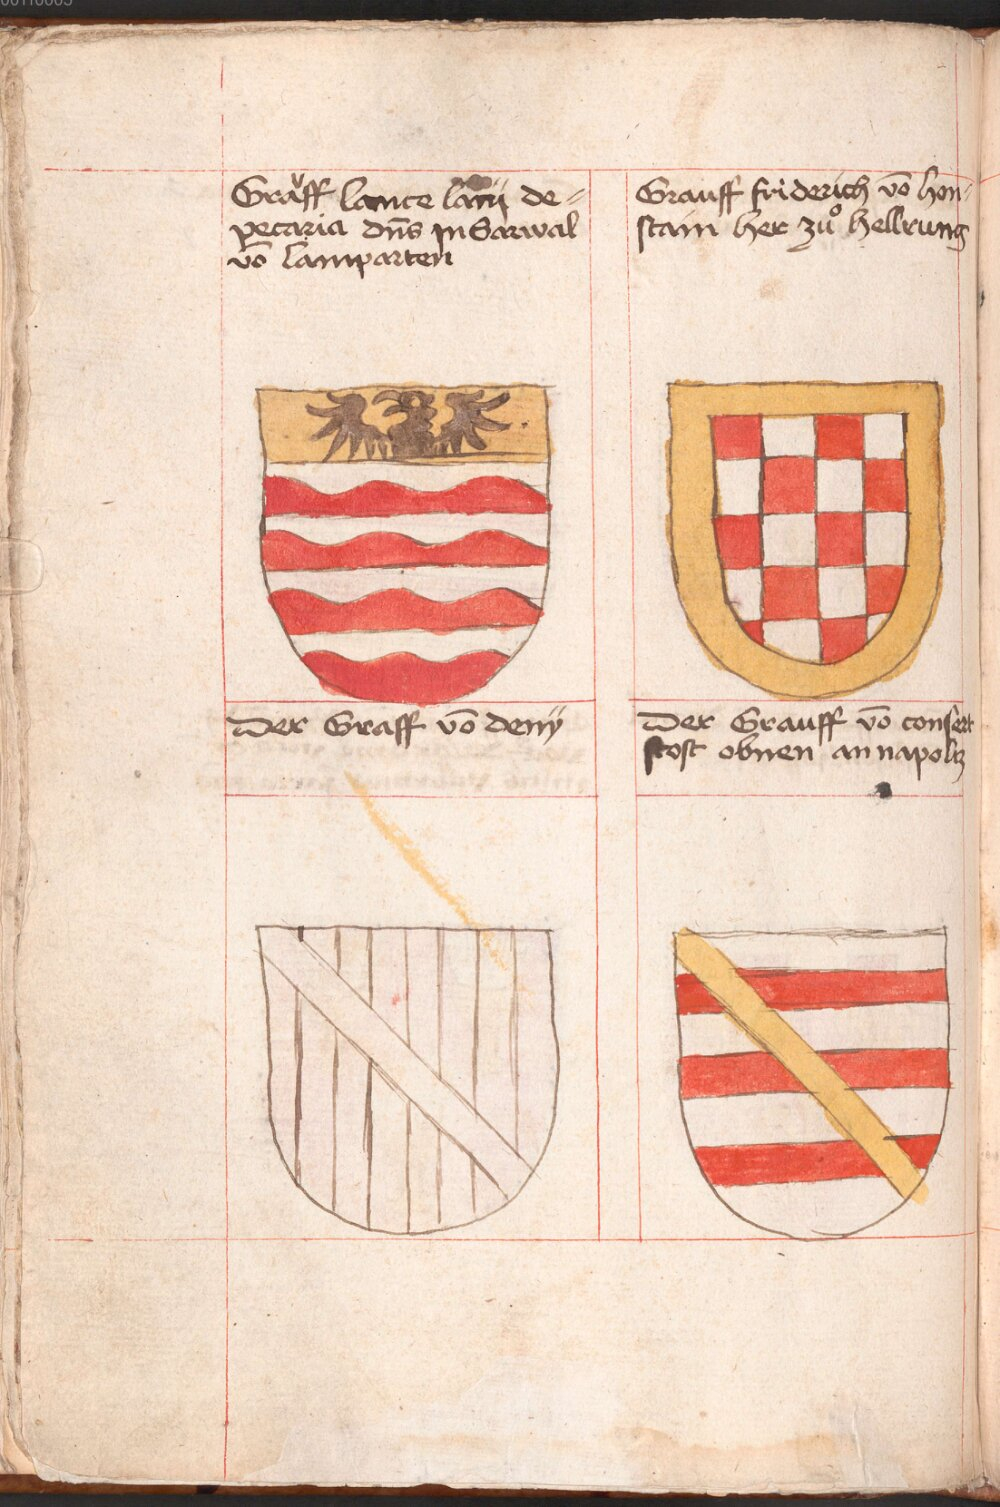 Graff lance de=
pecaria dn̄s in Sarwal
vō lamparten
Grauff friderich vō hon-
stain her zů hellrung
Der Graff vō deny
Der Grauff vō
stost obnen an napoltz